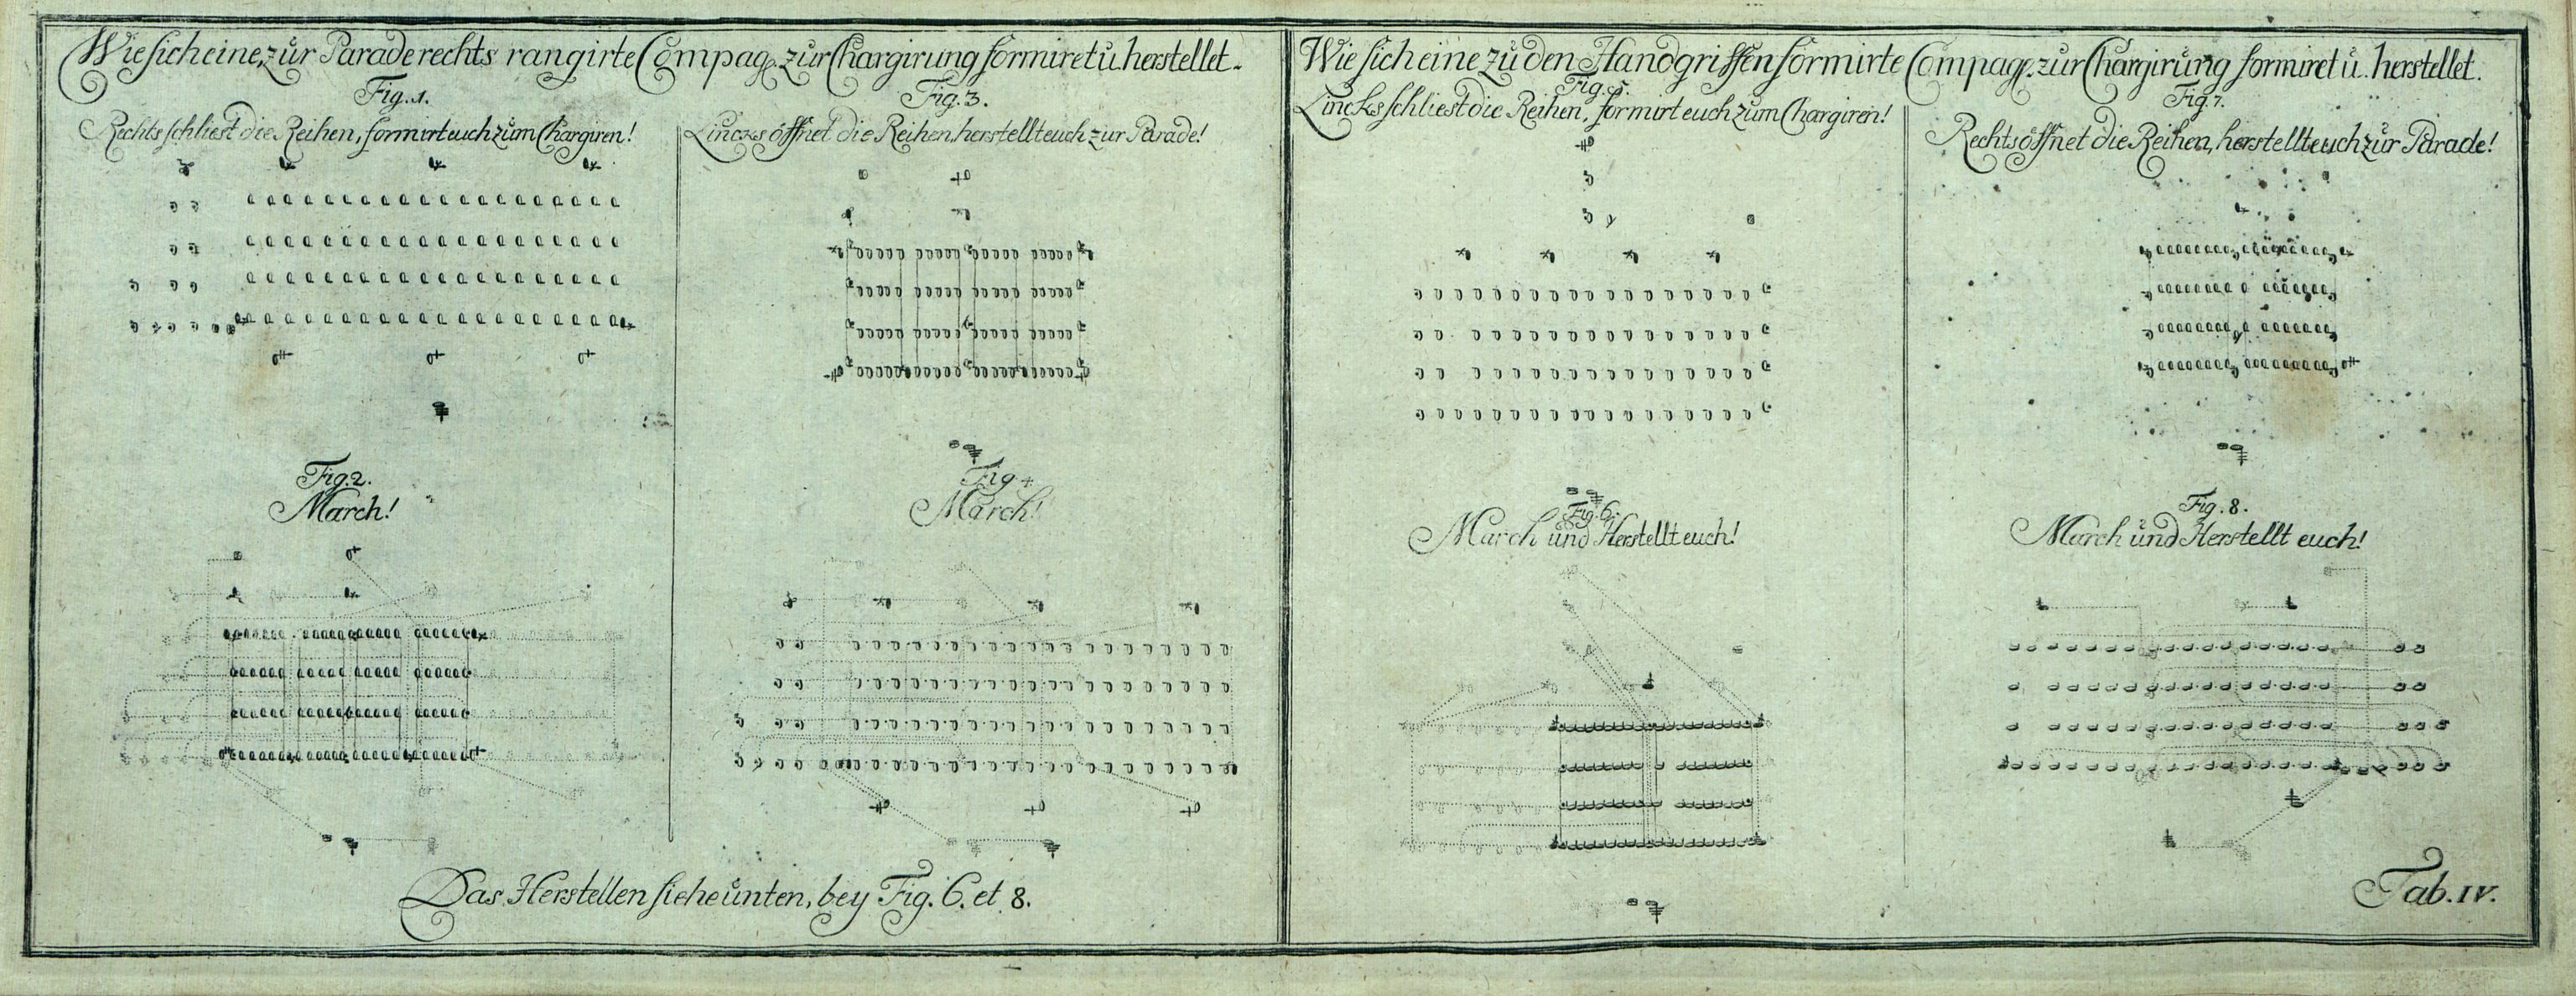 Wie sich eine, zůr Parade rechts rangirte Compag. zur Chargirung formiret u. herstellet.
Fig. 1.
Rechts schliest die Reihen, formirt euch zům Chargiren!
Fig. 3.
Lincks öffnet die Reihen, herstellt euch zur Parade!
Fig. 2.
March!
Fig. 4.
March!
Das Herstellen siehe ůnten, bey Fig. 6. et 8.
Wie sich eine zů den Handgriffen formirte Compag. zůr Chargirůng formiret ů. herstellet.
Fig. 5.
Lincks schliest die Reihen, formirt euch zům Chargiren!
Fig. 7.
Rechts öffnet die Reihen, herstellt euch zůr Parade!
Fig. 6.
March ůnd Herstellt euch!
Fig. 8.
March ůnd Herstellt euch!
Tab. IV.